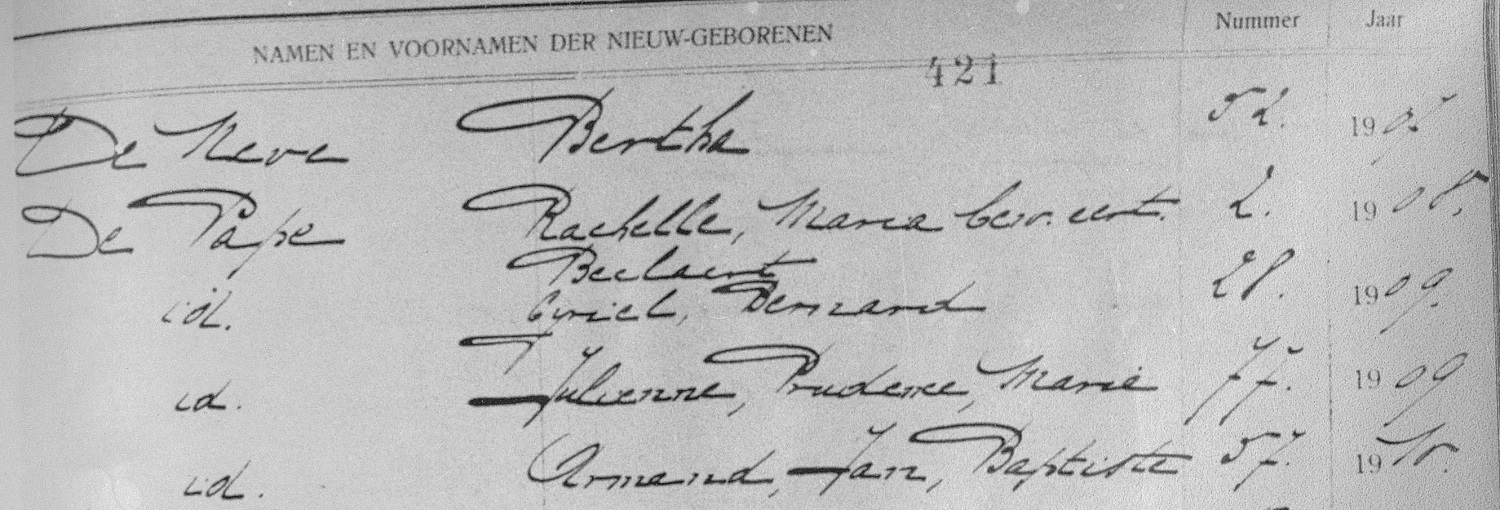 NAMEN EN VOORNAMEN DER NIEUW-GEBORENEN Nummer Jaar
421
De Neve Bertha 52. 19
De Pape Rachelle, Maria 2. 1908.
Beelaert
id. Cyriel, Bernard 28. 1909.
id. Julienne, Prudence, Marie 77. 1909
id. Armand, Jan, Baptiste 57. 1910.